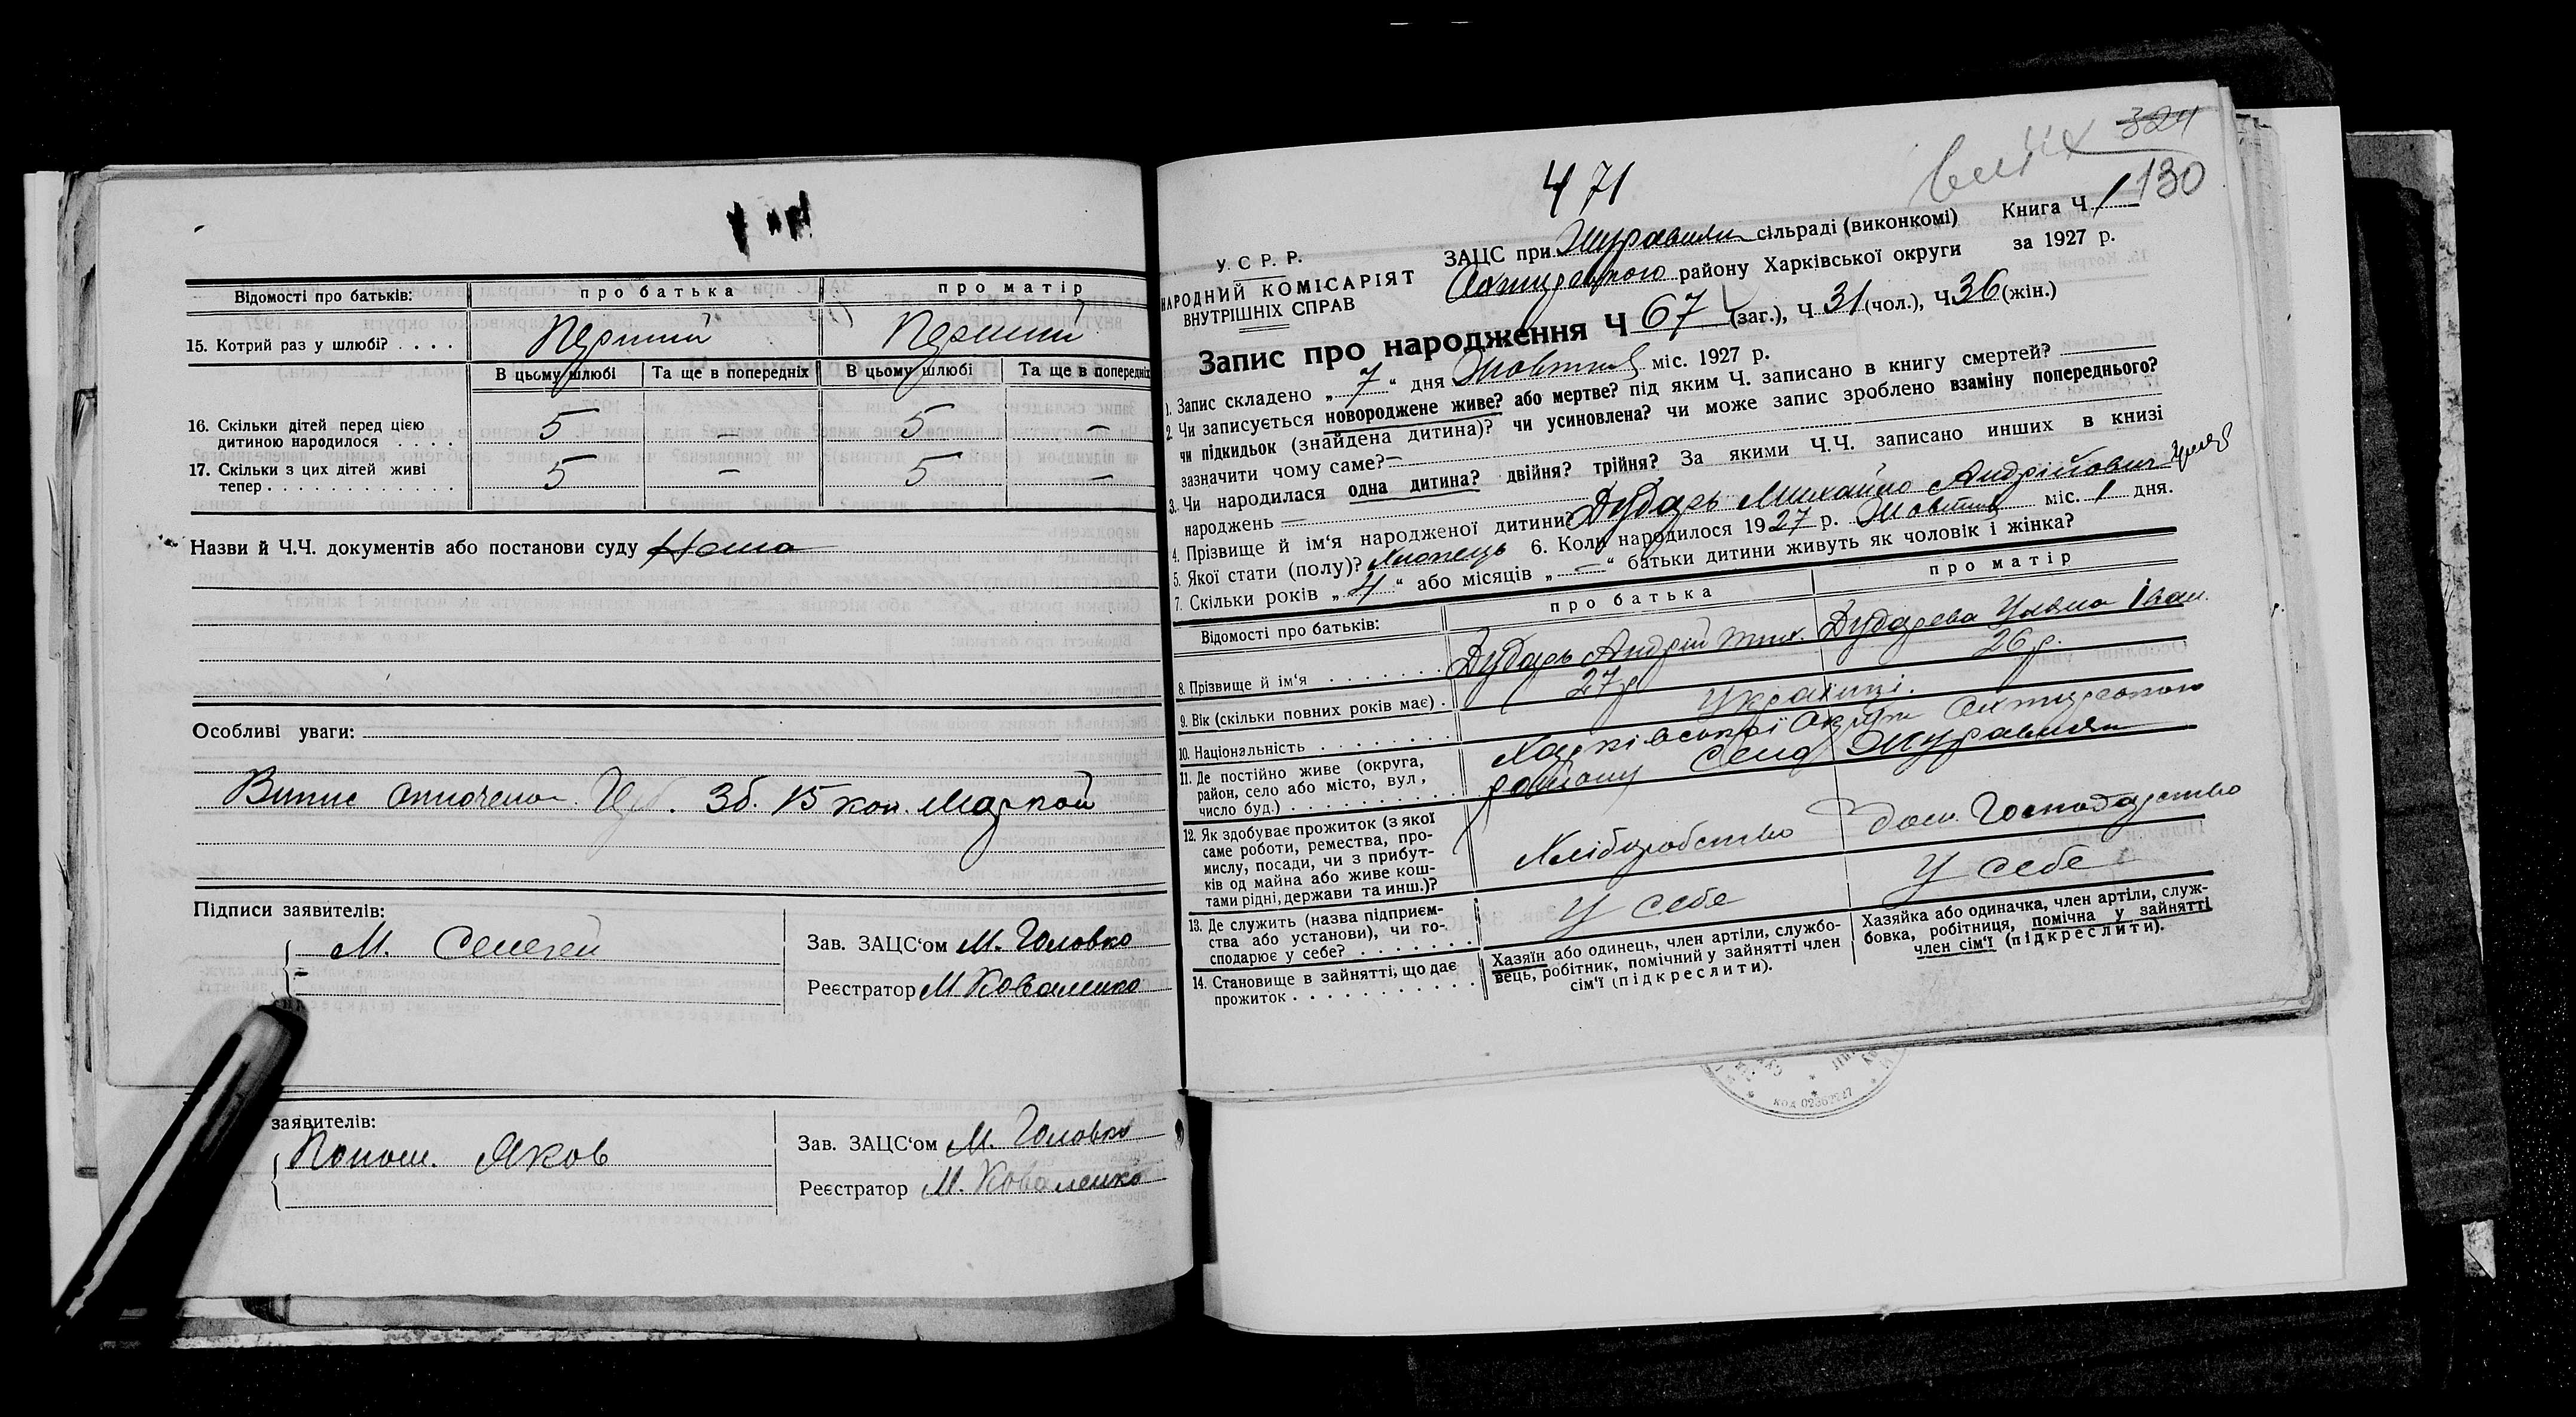 Відомості про батьків: про батька про матір
15. Котрий раз у шлюбі? . . . . Перший Перший
В цьому шлюбі Та ще в попередніх В цьому шлюбі Та ще в попередніх
16. Скільки дітей перед цією
дитиною народилося . . . . 5 — 5 —
17. Скільки з цих дітей живі
тепер . . . . . . . . . . . . 5 — 5 —
Назви й Ч.Ч. документів або постанови суду Нема
Особливі уваги:
Випис оплочено 3б. 15 коп. Маркой
Підписи заявителів:
М. Селезей
Зав. ЗАЦС‘ом М. Головко
Реєстратор М Коваленко
заявителів:
Яков
Зав. ЗАЦС‘ом М. Головко
Реєстратор М. Коваленко
324
130
471
У. С Р. Р.
НАРОДНИЙ КОМІСАРІЯТ
ВНУТРІШНІХ СПРАВ
ЗАЦС при Журавлян сільраді (виконкомі) Книга Ч 1
Охтирського району Харківської округи за 1927 р.
Запис про народження Ч 67 (заг.), Ч 31 (чол.), Ч 36 (жін.)
1. Запис складено „ 7 “ дня Жовтня міс. 1927 р.
2. Чи записується новороджене живе? або мертве? під яким Ч. записано в книгу смертей?
чи підкидьок (знайдена дитина)? чи усиновлена? чи може запис зроблено взаміну попереднього?
зазначити чому саме? —
3. Чи народилася одна дитина? двійня? трійня? За якими Ч.Ч. записано инших в книзі
народжень —
4. Прізвище й ім‘я народженої дитини? Дударь Михайло Андрійович
5. Якої стати (полу)? Хлопець 6. Коли народилося 1927 р. Жовтня міс. 1 дня.
7. Скільки років „ 4 “ або місяців „ — “ батьки дитини живуть як чоловік і жінка?
Відомості про батьків: про батька про матір
8. Прізвище й ім‘я . . . . . . . Дударь Андрій Тих. Дударева Уляна Іван.
9. Вік (скільки повних років має) . 27 р 26 р.
10. Національність . . . . . . . . Українці.
11. Де постійно живе (округа,
район, село або місто, вул,
число буд.) . . . . . . . . . . Харківської Округи Охтирського
району село Журавлян
12. Як здобуває прожиток (з якої
саме роботи, ремества, про-
мислу, посади, чи з прибут-
ків од майна або живе кош-
тами рідні, держави та инш.)? Хліборобство дом. Господарство
13. Де служить (назва підприєм-
ства або установи), чи го-
сподарює у себе? . . . . . . . У себе У себе
14. Становище в зайнятті, що дає
прожиток . . . . . . . . . . .
Хазяїн або одинець, член артіли, службо-
вець, робітник, помічний у зайнятті член
сім‘ї (підкреслити).
Хазяйка або одиначка, член артіли, служ-
бовка, робітниця, помічна у зайнятті
член сім‘ї (підкреслити).